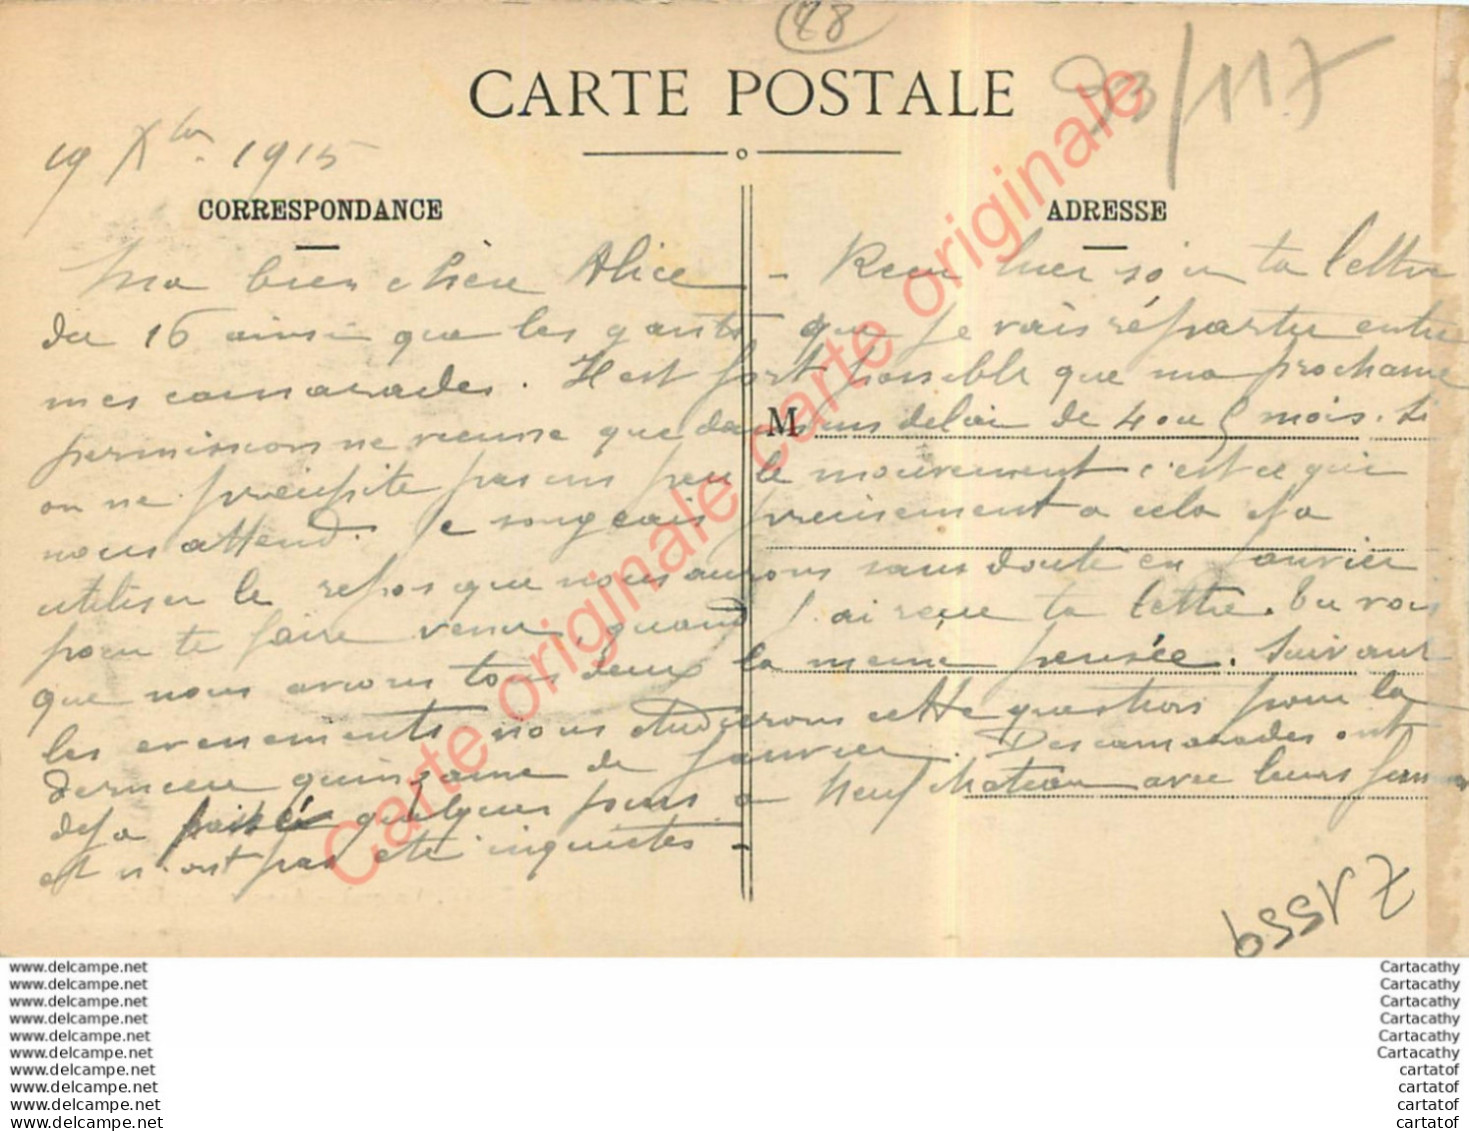 88
CARTE POSTALE
93/117
19 Xbre 1915
CORRESPONDANCE
ADRESSE
Ma bien chère Alice - Reçu hier soir ta lettre
du 16 ainsi que les gants que je vais répartir entre
mes camarades. Il est fort possible que ma prochaine
permission ne vienne que dans un délai de 4 ou 5 mois. Si
M
on ne précipite pas un peu le mouvement c'est ce qui
nous attend. Je songeais précisément a cela et a
utiliser le repos que nous aurons sans doute en Janvier
pour te faire venir, quand j'ai reçue ta lettre. Tu vois
que nous avions tous deux la meme pensée. Suivant
les evenements nous etudierons cette question pour la
derniere quinzaine de Janvier. Des camarades ont
deja passé quelques jours a Neufchateau avec leurs femmes
et n'ont pas ete inquietés -
Carte originale carte originale
www.delcampe.net
www.delcampe.net
www.delcampe.net
www.delcampe.net
www.delcampe.net
www.delcampe.net
www.delcampe.net
www.delcampe.net
www.delcampe.net
www.delcampe.net
Cartacathy
Cartacathy
Cartacathy
Cartacathy
Cartacathy
Cartacathy
cartatof
cartatof
cartatof
cartatof